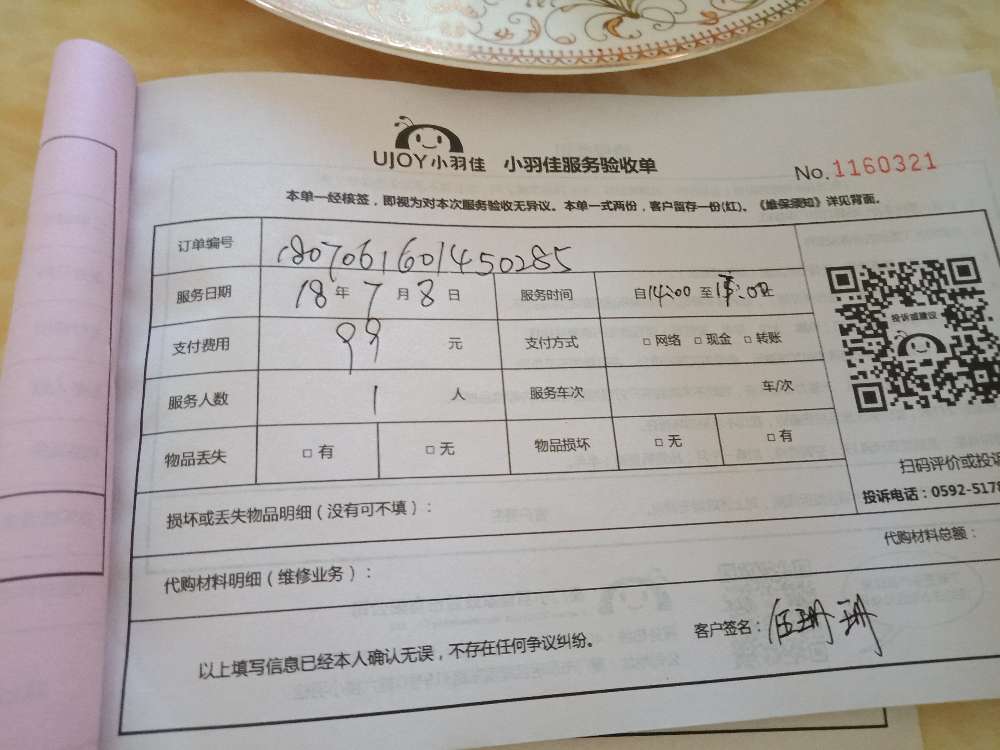 UJOY小羽佳 小羽佳服务验收单
No.1160321
本单一经核签，即视为对本次服务验收无异议。本单一式两份，客户留存一份(红)。《维保须知》详见背面。
订单编号 1807061601450285
服务日期 18年7月8日 服务时间 自14:00至15:00止
投诉或建议
支付费用 99 元 支付方式 □网络 □现金 □转账
服务人数 1 人 服务车次 车/次
物品丢失 □有 □无 物品损坏 □无 □有
扫码评价或投诉
投诉电话：0592-5178
损坏或丢失物品明细（没有可不填）：
代购材料明细（维修业务）： 代购材料总额：
以上填写信息已经本人确认无误，不存在任何争议纠纷。 客户签名：伍珊珊